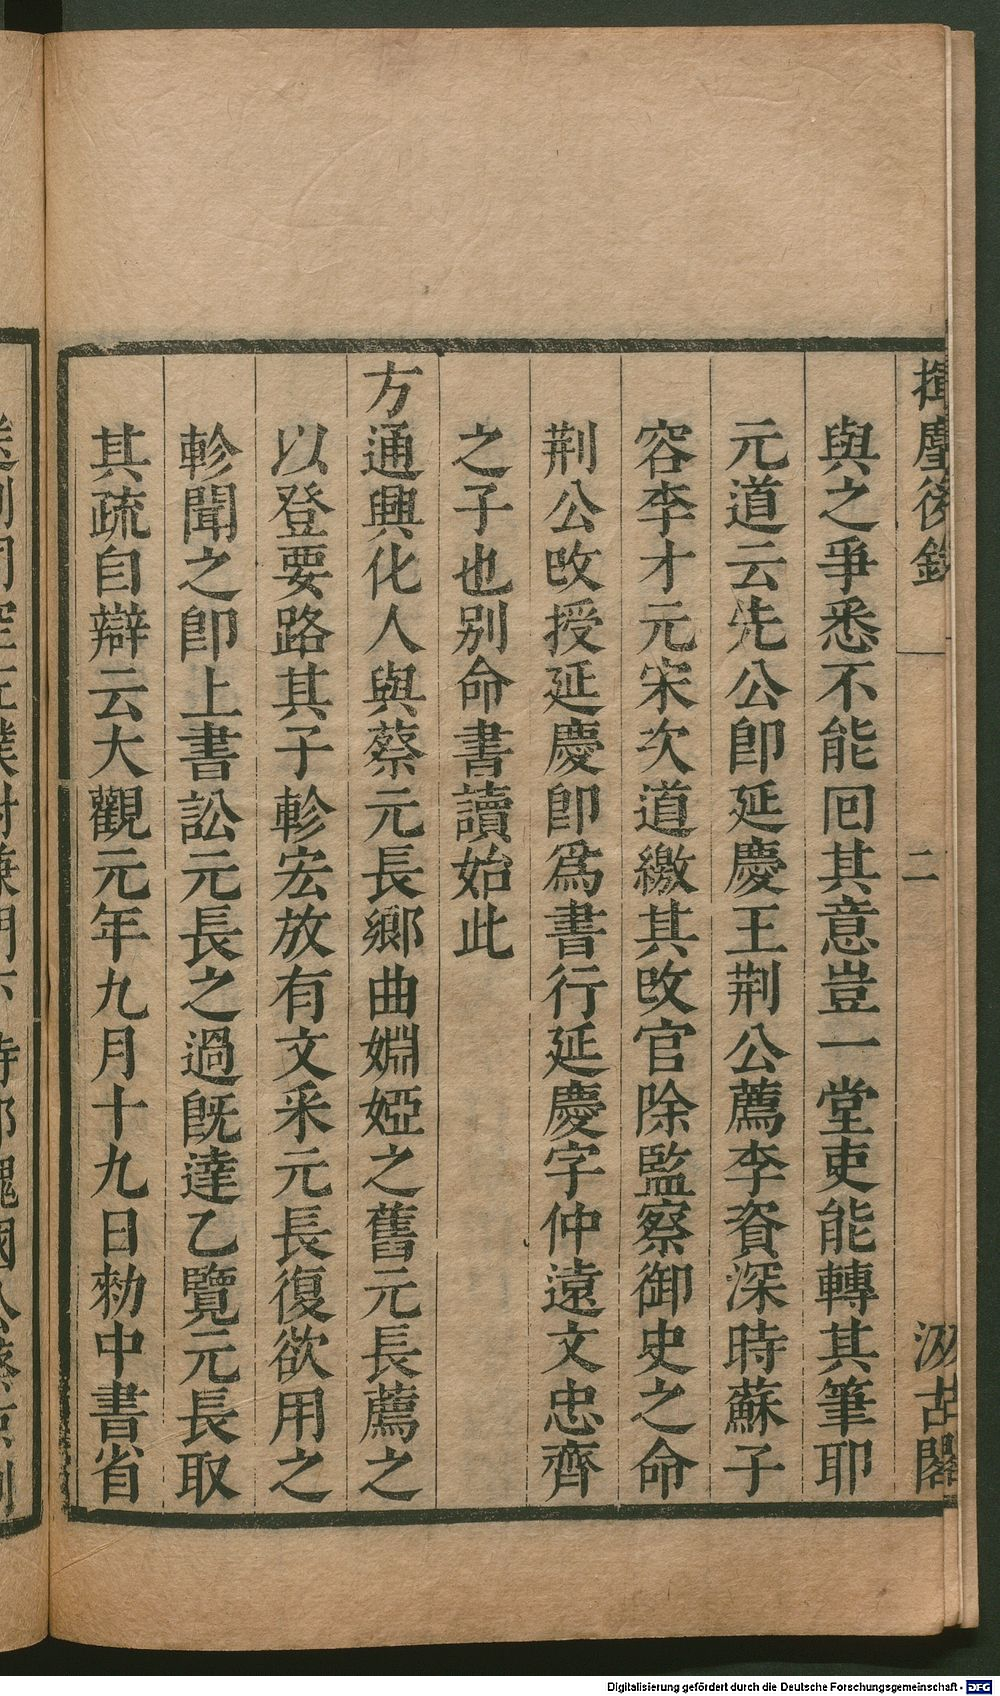 揮麈後錄
二
汲古閣
與之爭悉不能回其意豈一堂吏能轉其筆耶
元道云先公卽延慶王荆公薦李資深時蘇子
容李才元宋次道繳其改官除監察御史之命
荆公改授延慶卽爲書行延慶字仲遠文忠齊
之子也别命書讀始此
方通興化人與蔡元長鄉曲婣婭之舊元長薦之
以登要路其子軫宏放有文釆元長復欲用之
軫聞之卽上書訟元長之過旣達乙覽元長取
其疏自辯云大觀元年九月十九日勑中書省
Digitalisierung gefördert durch die Deutsche Forschungsgemeinschaft - DFG